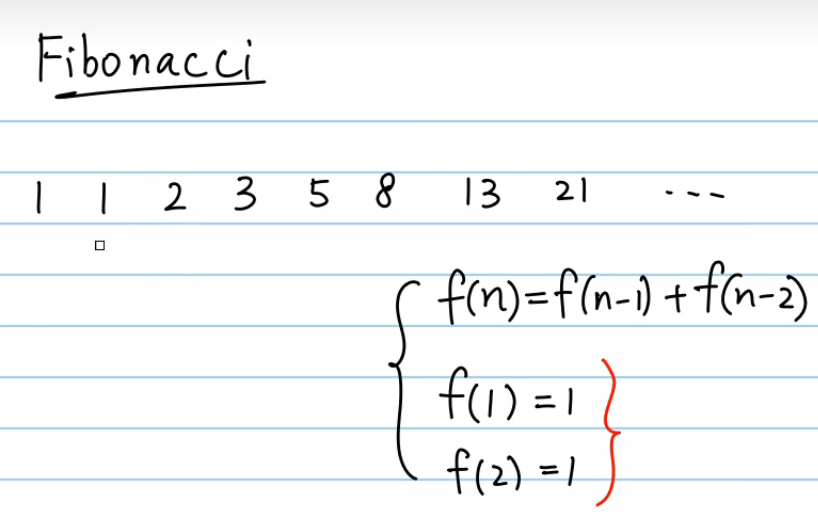 Fibonacci
1 1 2 3 5 8 13 21 ...
f(n)=f(n-1)+f(n-2)
f(1)=1
f(2)=1